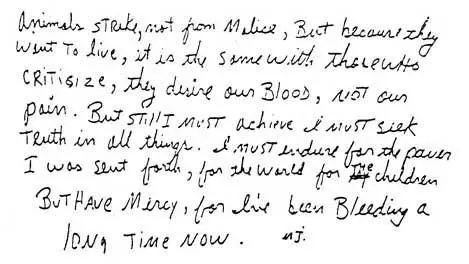 Animals strike, not from Malice, But because they
want To live, it is the same with those who
CRITISIZE, they desire our BLOOD, NOT our
pain. But still I MUST achieve I MUST SEEK
Truth in all things. I must endure for the power
I was sent forth, for the world for the children
BUT HAVE Mercy, for I've been Bleeding a
long TIME NOW. MJ.